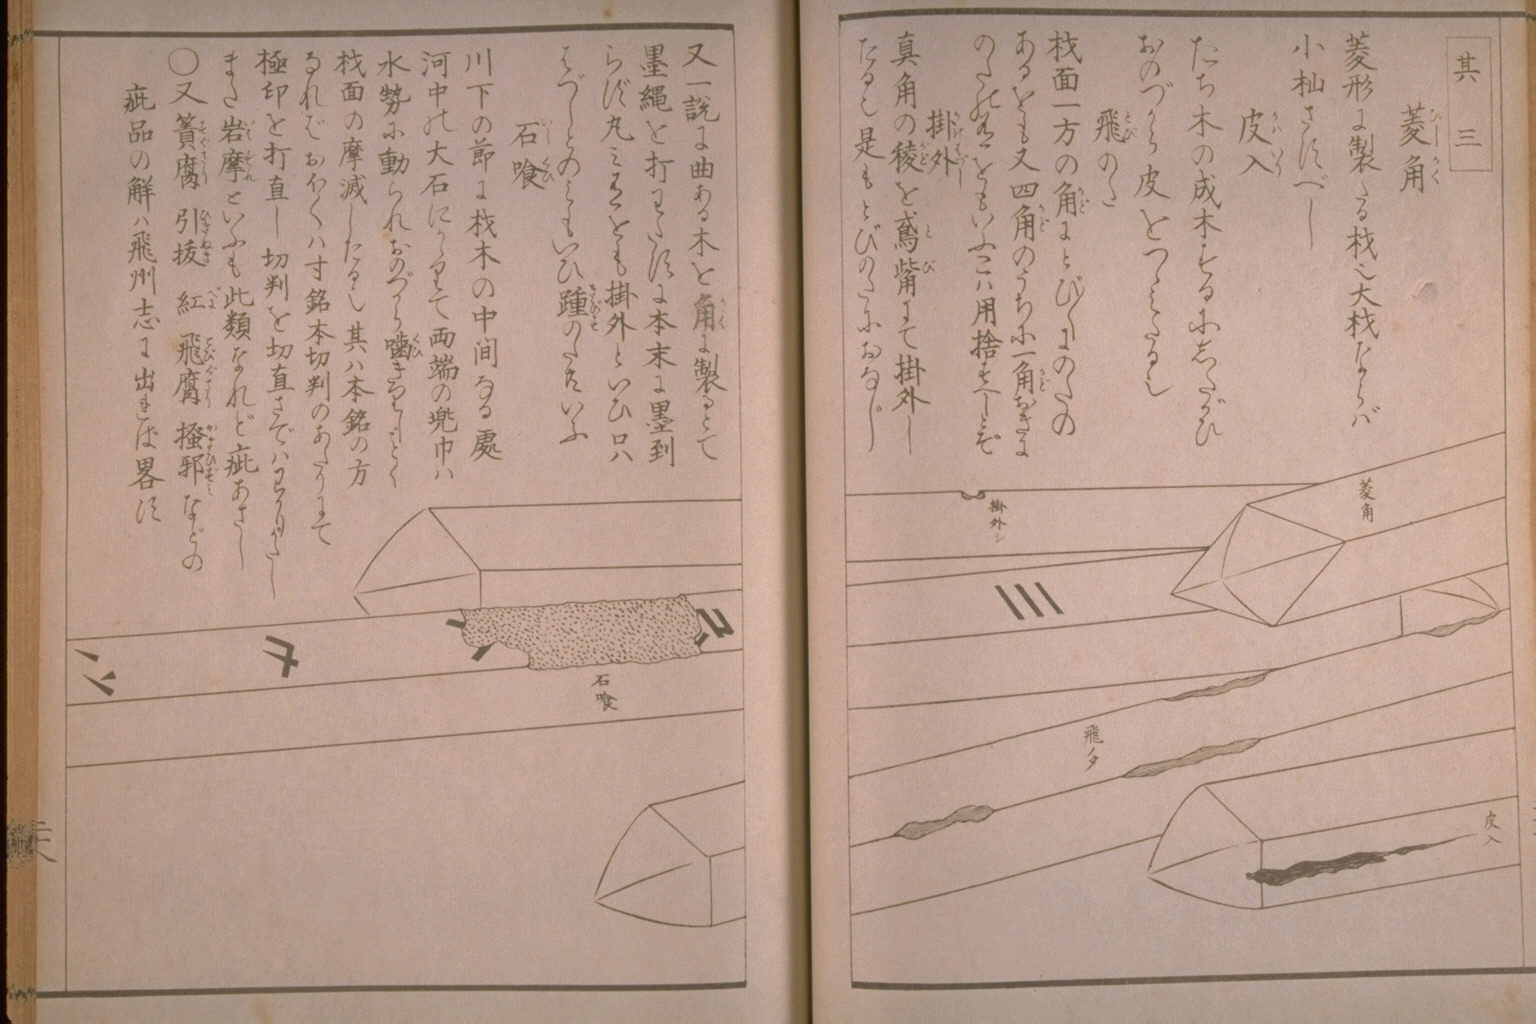 其三
菱角
菱形に製したる杦也大杦ならバ
小杣さすべし
皮入
たち木の成木するにしたがひ
おのづから皮をつゝみたる也
飛のた
杦面一方の角にとび〳〵にのたの
あるをも又四角のうち小一角おきに
のたれ有をもいふこハ用捨すべしとぞ
掛外
真角の稜を鳶觜にて掛外し
たる也是もとびのたにおなじ
又一説に曲ある木を角に製るとて
墨縄を打わたすに本末に墨到
らず丸み有をも掛外といひ口ハ
はづしとのみもいひ踵のた共いふ
石喰
川下の節に杦木の中間なる處
河中の大石にかゝりて両端の兠巾ハ
水勢に動られおのづから噛き
杦面の摩滅したる也其ハ本銘の方
なれどおほくハ寸銘本切判のあたりにて
極印を打直し切判を切直さでハ
また岩摩といふも此類なれど疵あさし
〇又簀腐 引抜 紅 飛腐 掻邪などの
疵品の解ハ飛州志に出れば畧す
菱角
掛外シ
飛ノタ
皮入
石喰